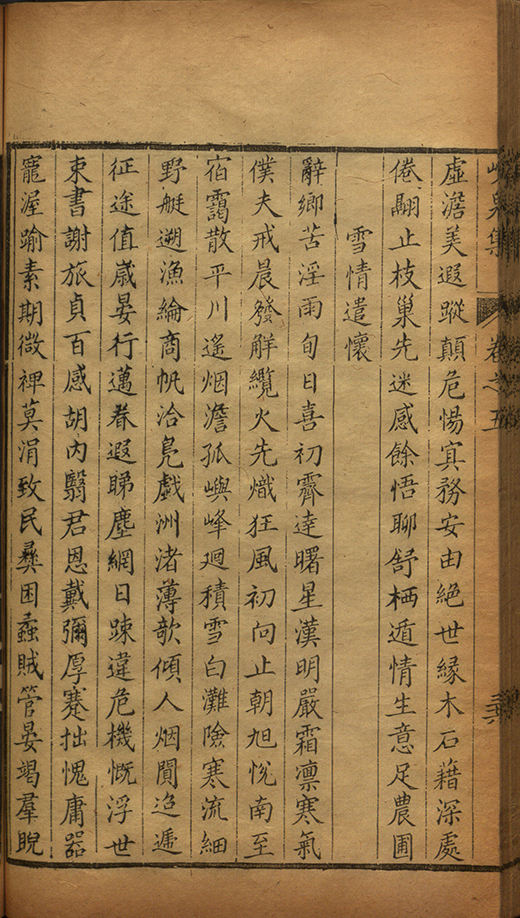 峴泉集 卷之五
虛澹美遐蹤顛危惕寘務安由絶世緣木石藉深處
倦翮止枝巢先迷感餘悟聊舒栖遁情生意足農圃
雪情遣懷
辭鄉苦淫雨旬日喜初霽達曙星漢明嚴霜凛寒氣
僕夫戒晨發觧纜火先熾狂風初向止朝旭恱南至
宿靄散平川遙烟澹孤嶼峰廻積雪白灘險寒流細
野艇遡漁綸商帆洽鳧戲洲渚薄欹傾人烟閴迢遞
征途值嵗晏行邁眷遐睇塵網日踈違危機慨浮世
束書謝旅貞百感胡內翳君恩戴彌厚蹇拙愧庸器
寵渥踰素期微裨莫涓致民彞困蟊賊管晏竭羣睨